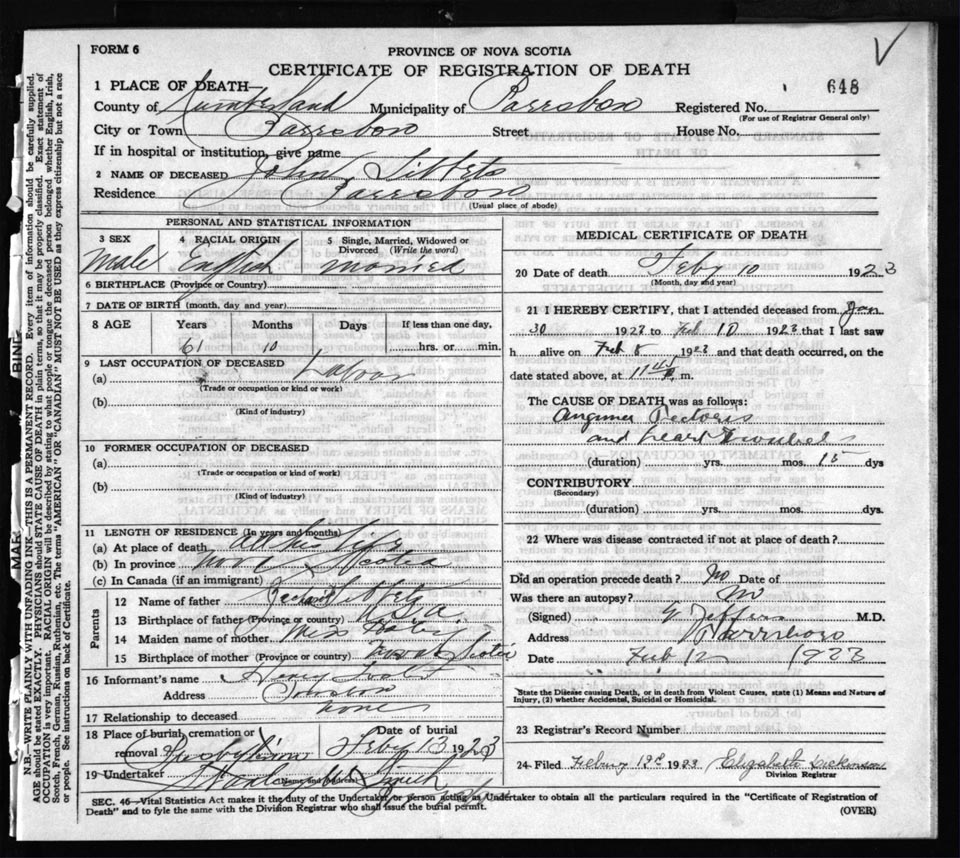 FORM 6
PROVINCE OF NOVA SCOTIA
CERTIFICATE OF REGISTRATION OF DEATH
648
1 PLACE OF DEATH
County of Cumberland Municipality of Parrsboro Registered No.
(For use of Registrar General only)
City or Town Parrsboro Street House No.
If in hospital or institution, give name
2 NAME OF DECEASED John Tibbets
Residence Parrsboro
(Usual place of abode)
PERSONAL AND STATISTICAL INFORMATION
3 SEX 4 RACIAL ORIGIN 5 Single, Married, Widowed or Divorced (Write the word)
Male English married
6 BIRTHPLACE (Province or Country)
7 DATE OF BIRTH (month, day and year)
8 AGE Years Months Days If less than one day,
61 10 hrs. or min.
9 LAST OCCUPATION OF DECEASED
(a) Labor
(Trade or occupation or kind or work)
(b)
(Kind of industry)
10 FORMER OCCUPATION OF DECEASED
(a)
(Trade or occupation or kind of work)
(b)
(Kind of industry)
11 LENGTH OF RESIDENCE (In years and months)
(a) At place of death All his life
(b) In province Nova Scotia
(c) In Canada (if an immigrant)
Parents
12 Name of father Tibbets
13 Birthplace of father (Province or country)
14 Maiden name of mother Miss
15 Birthplace of mother (Province or country) Nova Scotia
16 Informant's name Henry
Address
17 Relationship to deceased none
18 Place of burial, cremation or removal Date of burial
Feby 13 1923
19 Undertaker Smith
MEDICAL CERTIFICATE OF DEATH
20 Date of death Feby 10 1923
(Month, day and year)
21 I HEREBY CERTIFY, that I attended deceased from Jan
30 1923 to Feb 10 1923 that I last saw
h alive on Feb 8 1923 and that death occurred, on the
date stated above, at 11 45 m.
The CAUSE OF DEATH was as follows:
Angina Pectoris
and heart trouble
(duration) yrs. mos. 15 dys
CONTRIBUTORY
(Secondary)
(duration) yrs. mos. dys.
22 Where was disease contracted if not at place of death?
Did an operation precede death? No Date of
Was there an autopsy? No
(Signed) Jeffers M.D.
Address Parrsboro
Date Feb 12 1923
State the Disease causing Death, or in death from Violent Causes, state (1) Means and Nature of
Injury, (2) whether Accidental, Suicidal or Homicidal.
23 Registrar's Record Number
24 Filed 1923 Elizabeth Dickinson
Division Registrar
SEC. 46—Vital Statistics Act makes it the duty of the Undertaker or person acting as Undertaker to obtain all the particulars required in the "Certificate of Registration of
Death" and to fyle the same with the Division Registrar who shall issue the burial permit.
(OVER)
N.B.—WRITE PLAINLY WITH UNFADING INK—THIS IS A PERMANENT RECORD. Every item of information should be carefully supplied.
AGE should be stated EXACTLY. PHYSICIANS should STATE CAUSE OF DEATH in plain terms, so that it may be properly classified. Exact statement of
OCCUPATION is very important. RACIAL ORIGIN will be described by stating to what people or tongue the deceased person belonged whether English, Irish,
Scotch, French, German, Russian, Ruthenian, etc. The terms "AMERICAN" or "CANADIAN" MUST NOT BE USED as they express citizenship but not a race
or people. See instructions on back of Certificate.